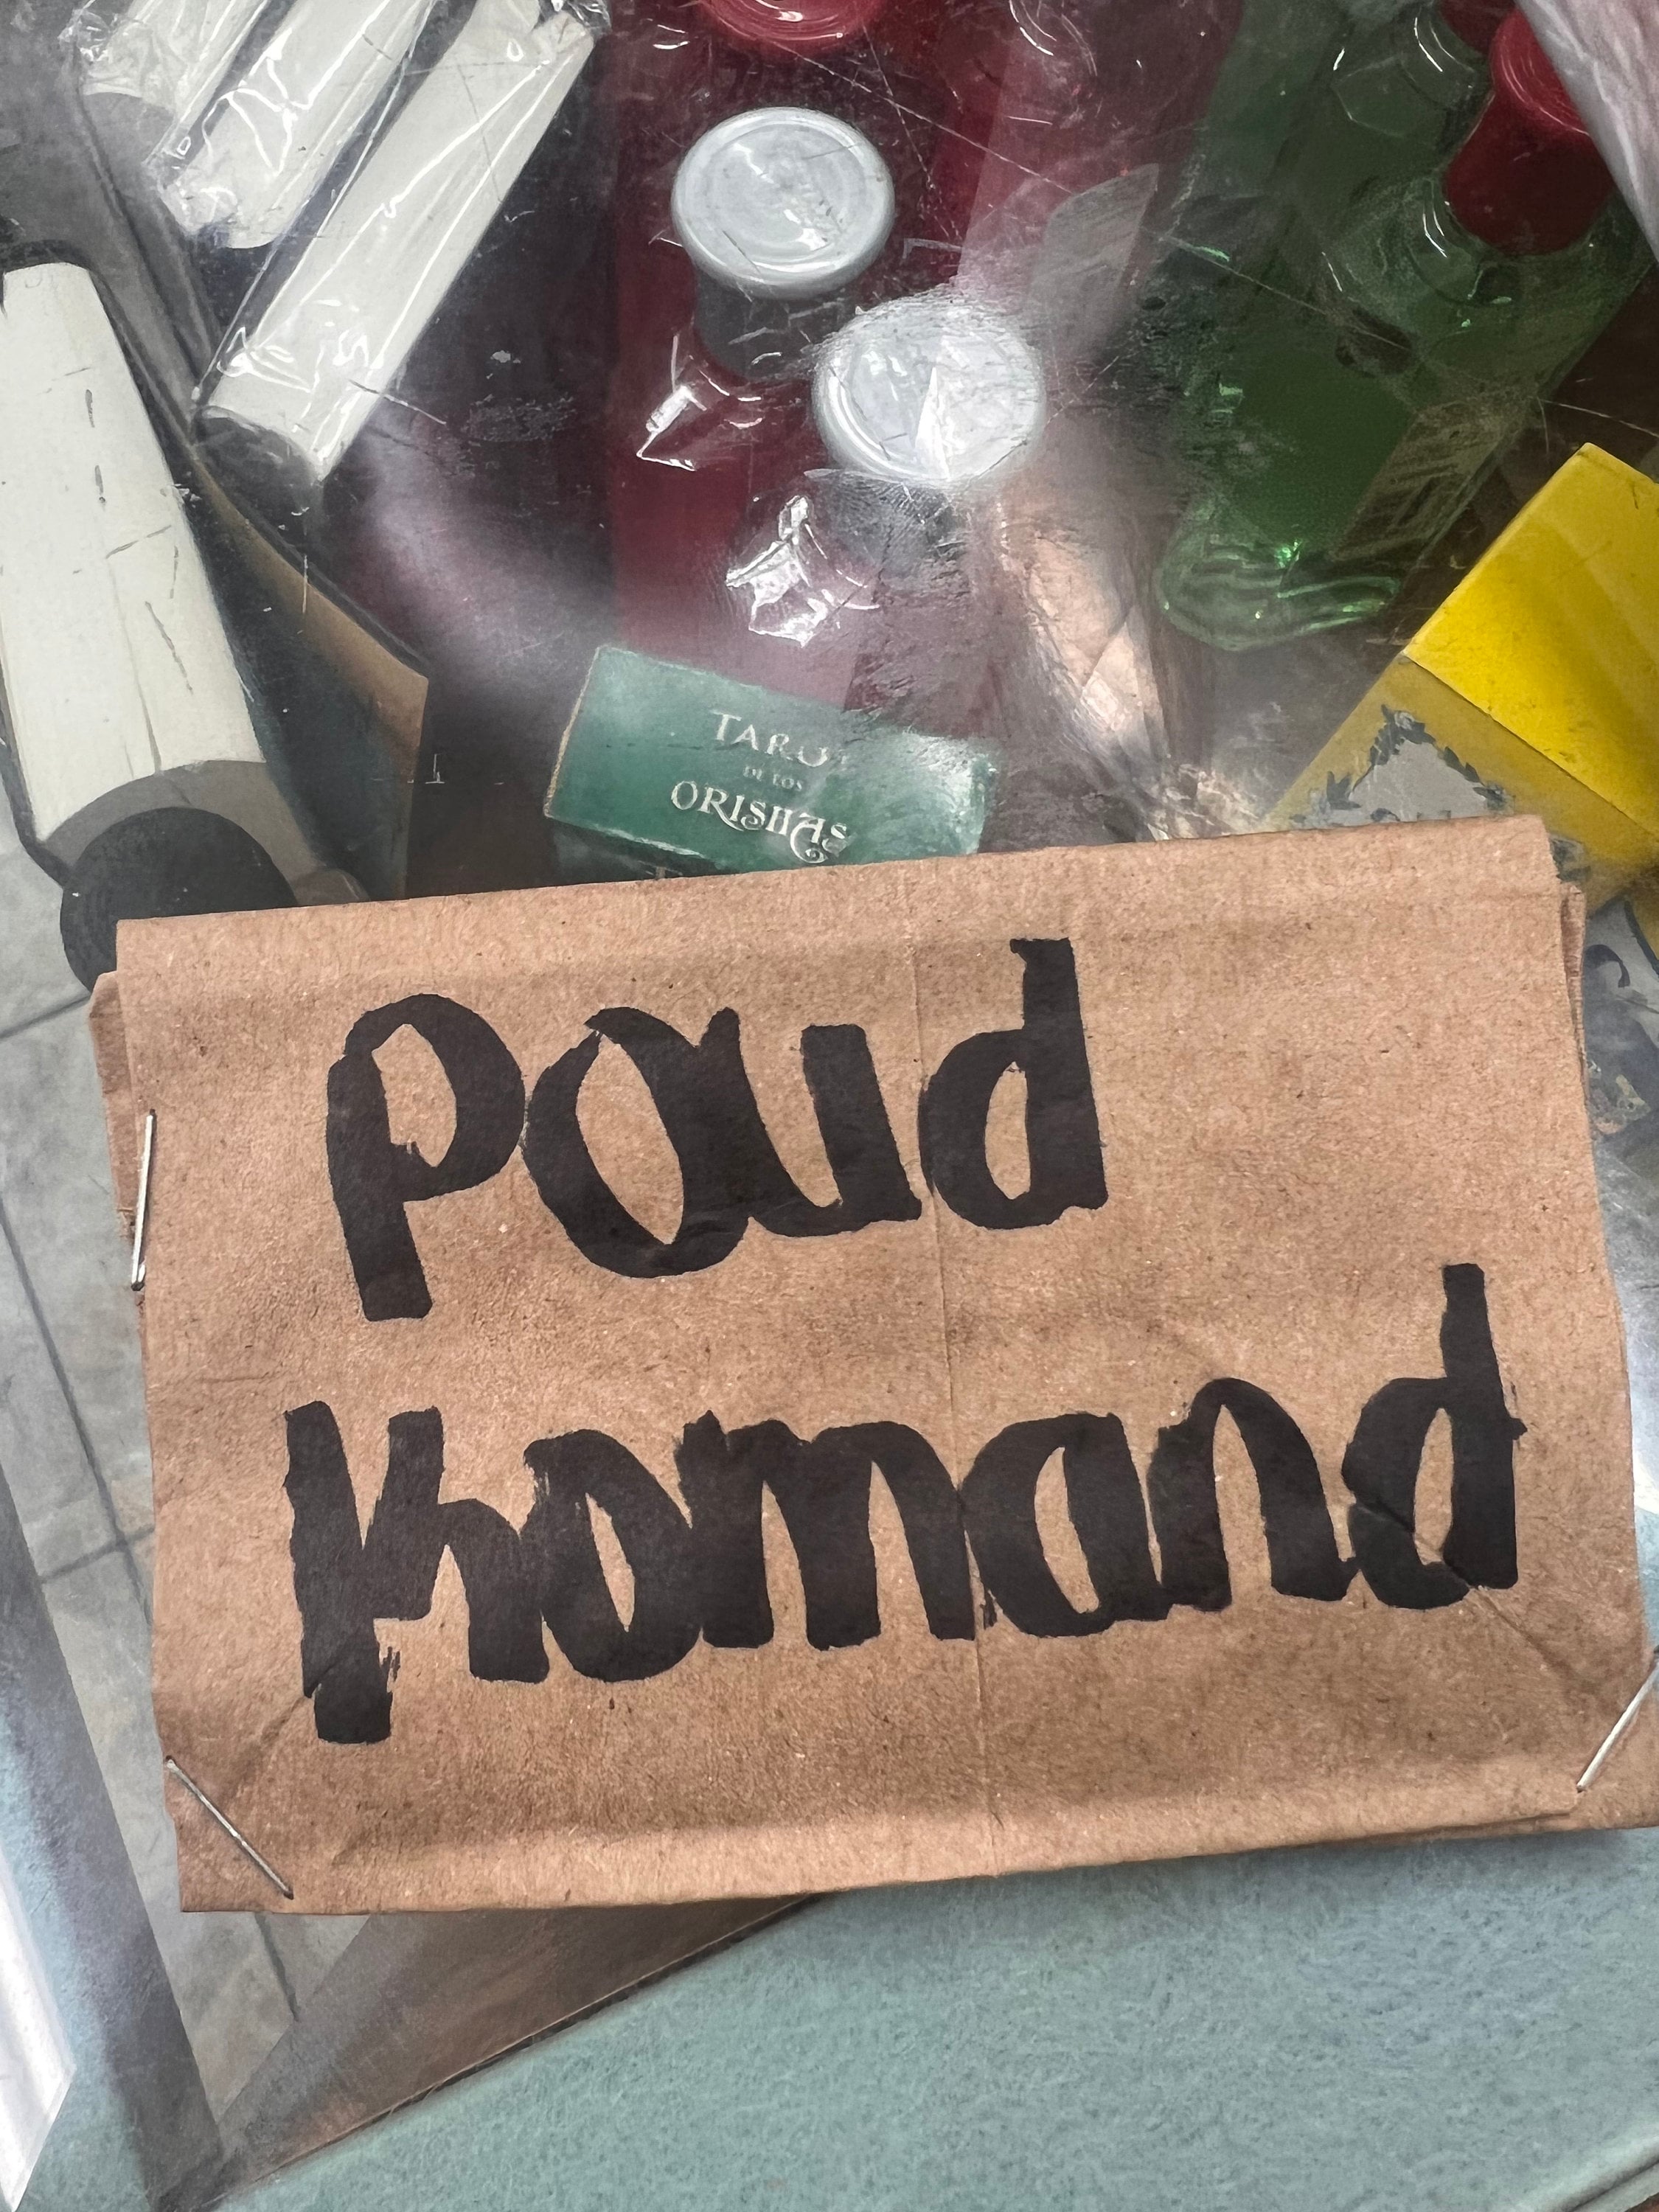 TAROT
DE LOS
ORISHAS
Poud
Komand